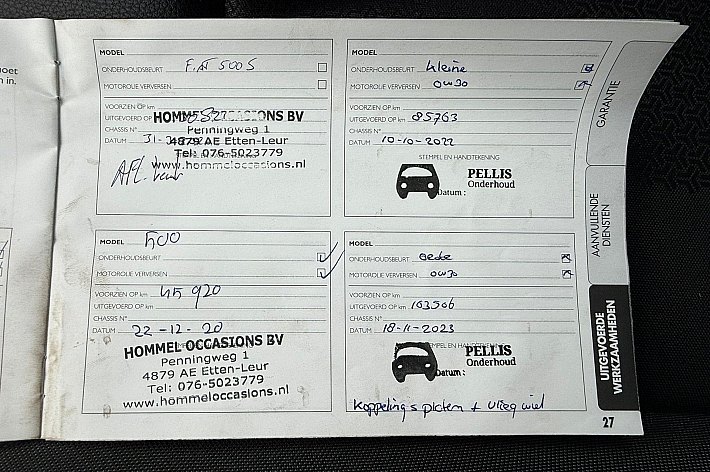 MODEL
ONDERHOUDSBEURT FIAT 500S
MOTOROLIE VERVERSEN
VOORZIEN OP km
UITGEVOERD OP km
CHASSIS N°
DATUM 31-
HOMMEL OCCASIONS BV
Penningweg 1
4879 AE Etten-Leur
Tel: 076-5023779
www.hommeloccasions.nl
MODEL
ONDERHOUDSBEURT kleine
MOTOROLIE VERVERSEN 0w30
VOORZIEN OP km
UITGEVOERD OP km 85763
CHASSIS N°
DATUM 10-10-2022
STEMPEL EN HANDTEKENING
PELLIS
Onderhoud
Datum:
MODEL 500
ONDERHOUDSBEURT
MOTOROLIE VERVERSEN
VOORZIEN OP km 45920
UITGEVOERD OP km
CHASSIS N°
DATUM 22-12-20
HOMMEL OCCASIONS BV
Penningweg 1
4879 AE Etten-Leur
Tel: 076-5023779
www.hommeloccasions.nl
MODEL
ONDERHOUDSBEURT
MOTOROLIE VERVERSEN 0w30
VOORZIEN OP km
UITGEVOERD OP km 103506
CHASSIS N°
DATUM 18-11-2023
PELLIS
Onderhoud
Datum:
koppelings platen + vliegwiel
GARANTIE
AANVULLENDE
DIENSTEN
UITGEVOERDE
WERKZAAMHEDEN
27